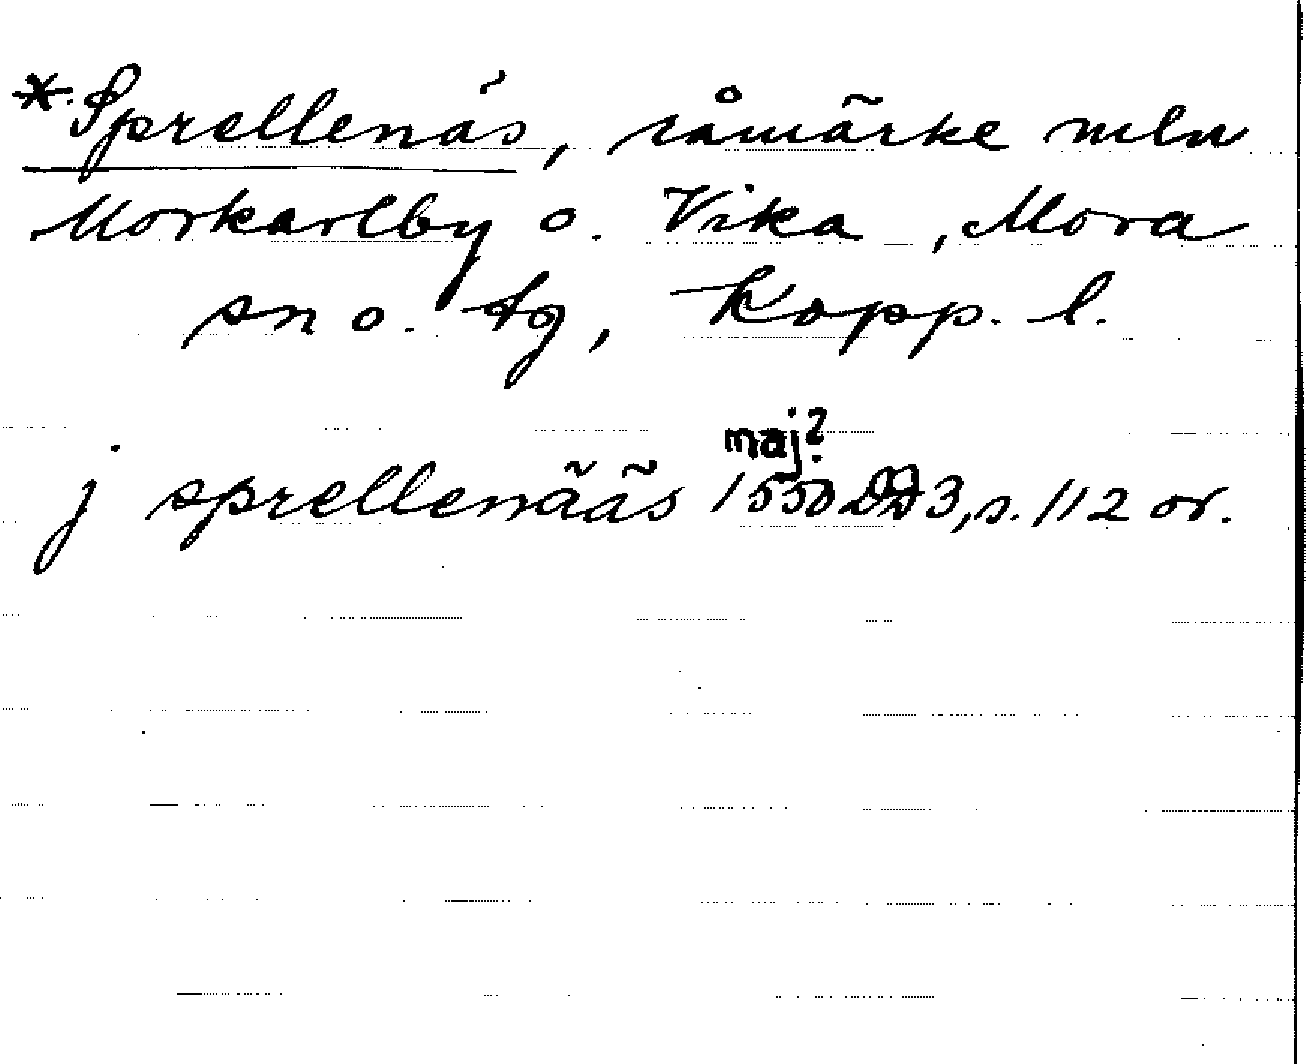 *Sprellenäs, råmärke mln
Morkarlby o. Vika, Mora
sn o. tg, Kopp. l.
maj?
j sprellenääs 1550 DD3, s. 112 or.